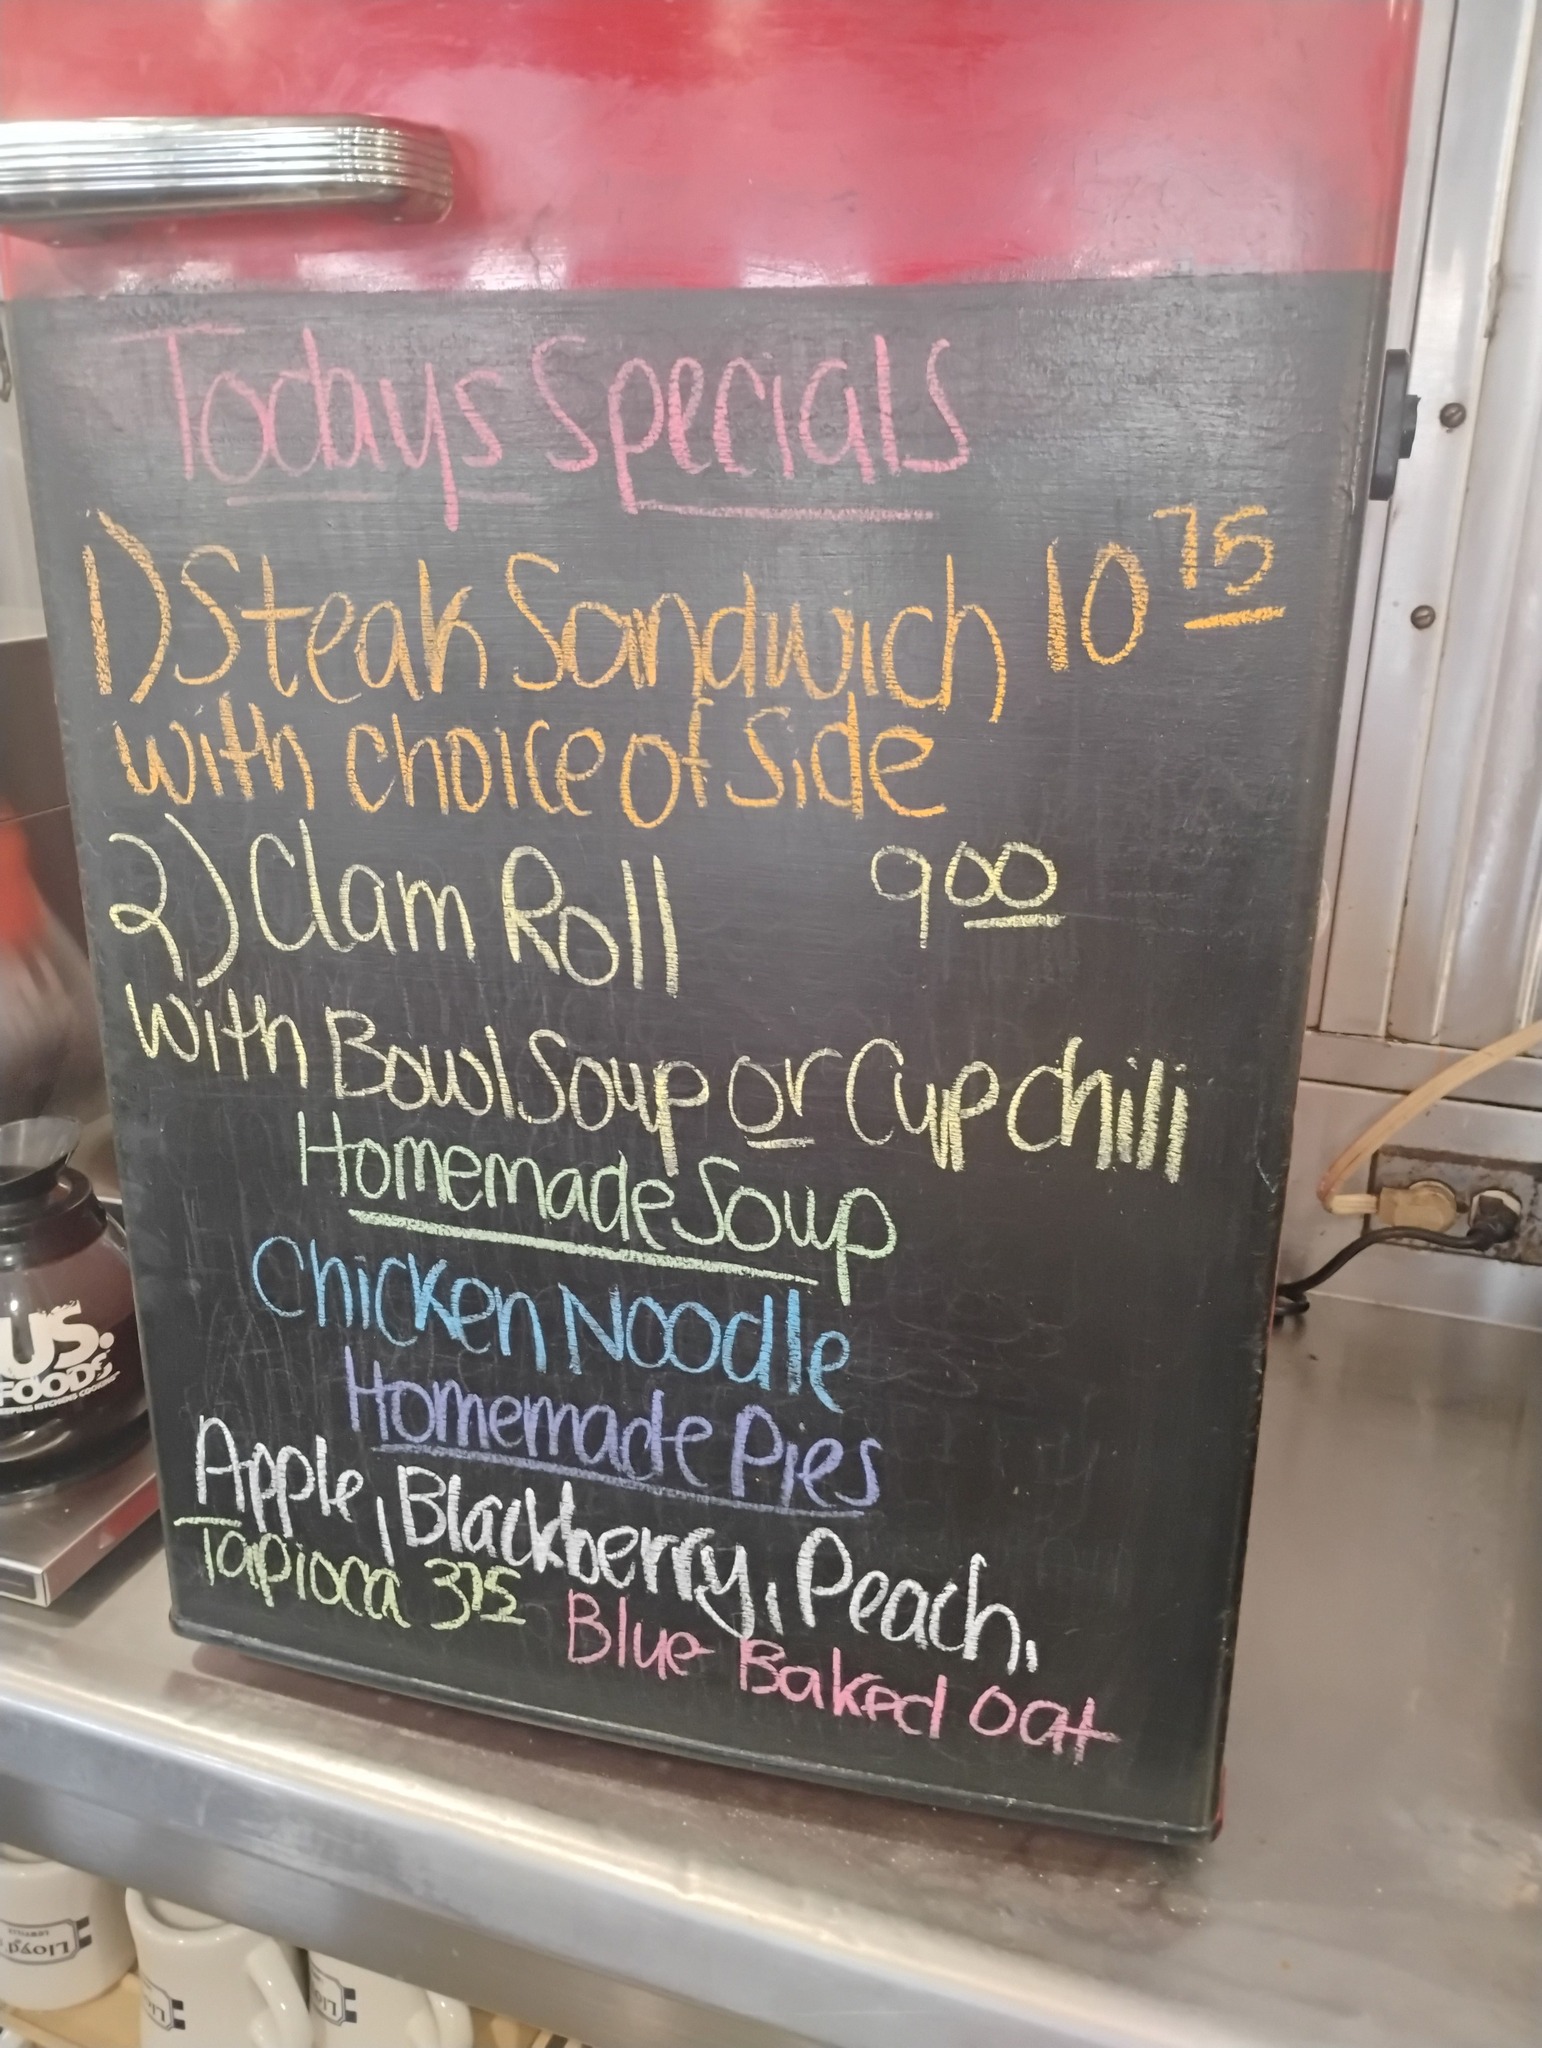 Todays Specials
1) Steak Sandwich 10 75
with choice of side
2) Clam Roll 9 00
with Bowl Soup or Cup chili
Homemade Soup
Chicken Noodle
Homemade Pies
Apple, Blackberry, Peach,
Tapioca 3 75 Blue Baked Oat
US.
FOODS
KEEPING KITCHENS COOKING
Lloyd's
LOWVILLE